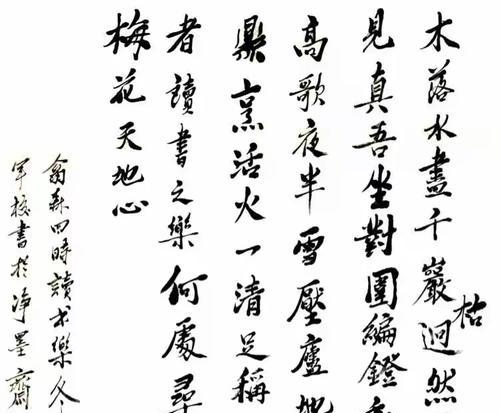 木落水盡千巖枯迥然
見真吾坐對圍編鐙
高歌夜半雪壓廬地
鼎烹活火一清足稱
者讀書之樂何處尋
梅花天地心
翁森四時讀书樂冬
軍校書於淨墨齋